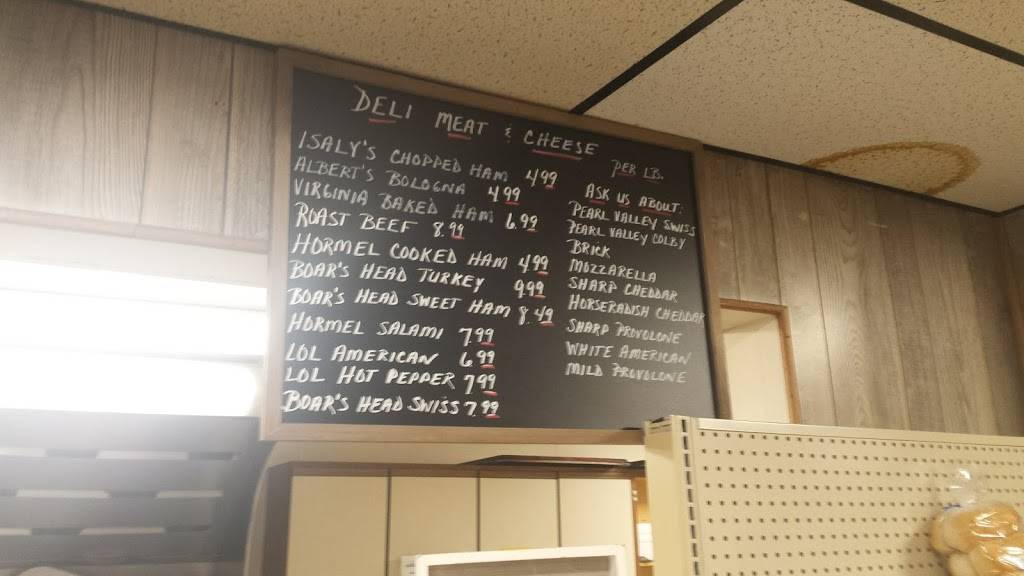 DELI MEAT & CHEESE
PER LB.
ISALY'S CHOPPED HAM 4.99
ALBERT'S BOLOGNA 4.99
VIRGINIA BAKED HAM 6.99
ROAST BEEF 8.99
HORMEL COOKED HAM 4.99
BOAR'S HEAD TURKEY 9.99
BOAR'S HEAD SWEET HAM 8.49
HORMEL SALAMI 7.99
LOL AMERICAN 6.99
LOL HOT PEPPER 7.99
BOAR'S HEAD SWISS 7.99
ASK US ABOUT:
PEARL VALLEY SWISS
PEARL VALLEY COLBY
BRICK
MOZZARELLA
SHARP CHEDDAR
HORSERADISH CHEDDAR
SHARP PROVOLONE
WHITE AMERICAN
MILD PROVOLONE